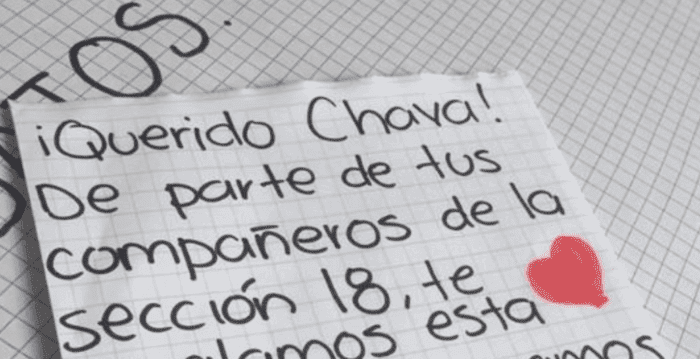 TOS.
¡Querido Chava!
De parte de tus
compañeros de la
sección 18, te
esta